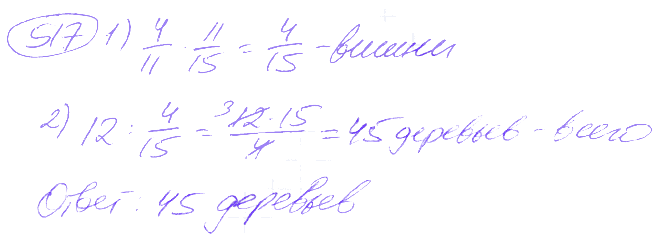 517 1) 4/11 · 11/15 = 4/15 - вишни
2) 12 : 4/15 = 12 · 15/4 = 45 деревьев - всего
Ответ: 45 деревьев